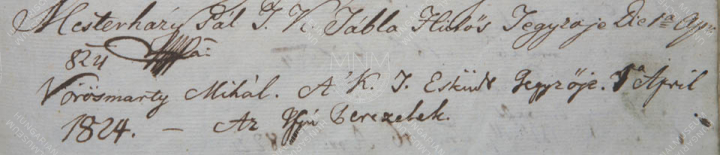 Mesterházy Pál T. K. Tábla Hütös Jegyzője Die 1a Apr.
824
Vörösmarty Mihál. A' K. T. Esküdt Jegyzője. 1a April
1824. — Az Ifjú Perczelek.